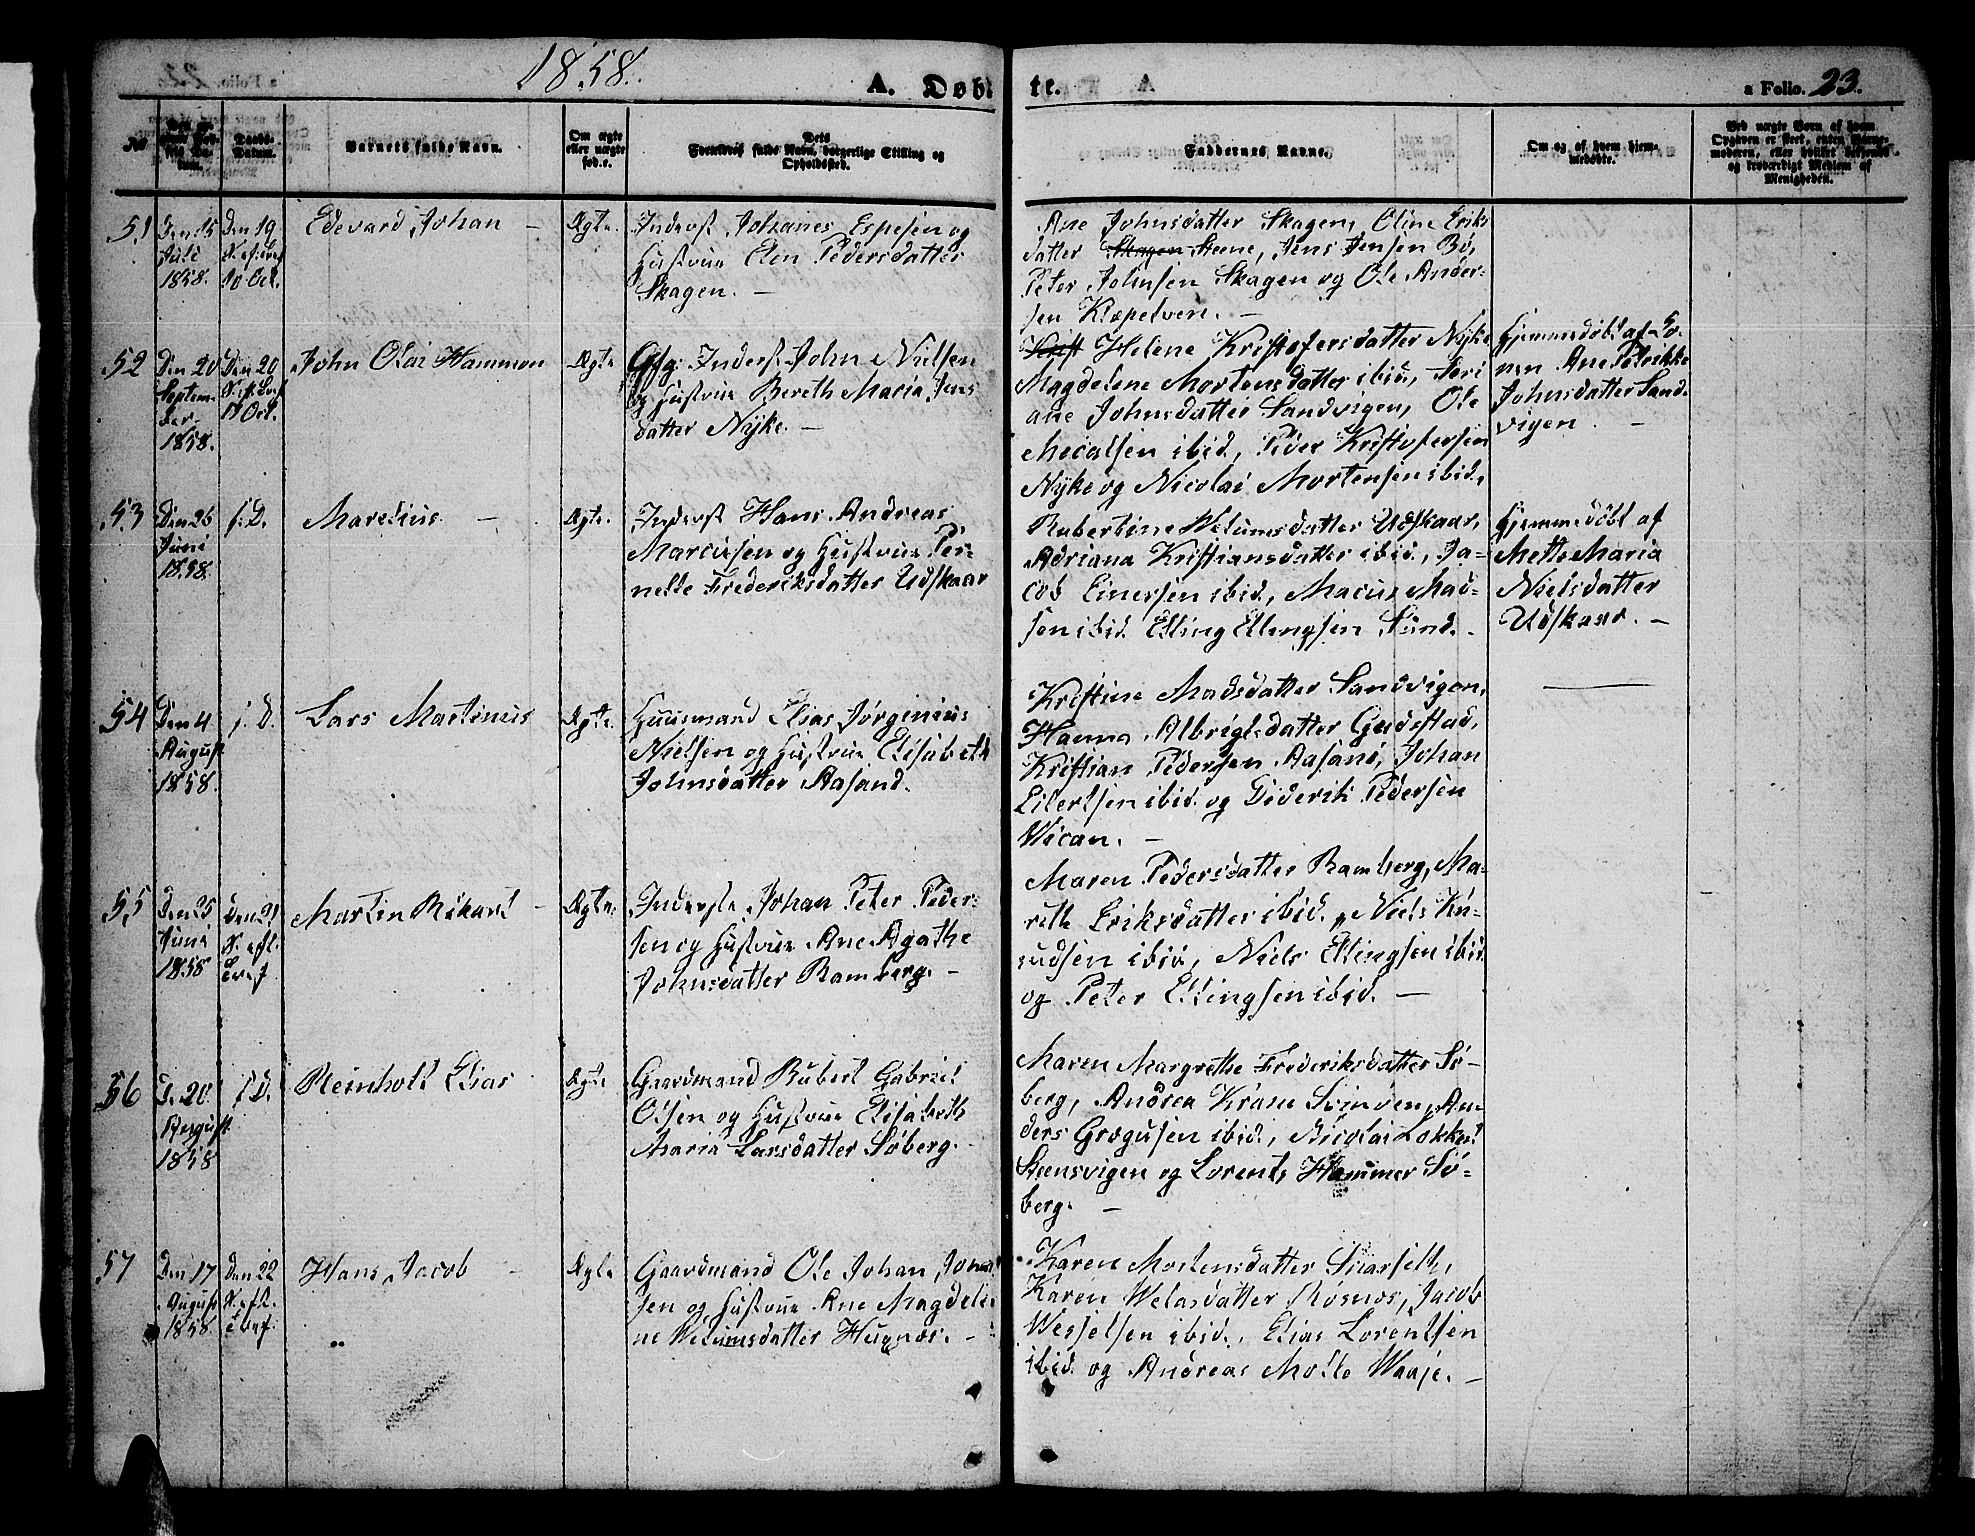 1858.
A. Døbte.
a Folio. 23.
No
Daabs-Datum.
Barnets fulde Navn.
Om ægte eller uægte fød.e.
Forældres fulde Navn, borgerlige Stilling og Opholdssted.
Faddernes Navne.
Om og af hvem hjemmedøbte.
Ved uægte Børn af hvem Opgiven er skeet, enten Barnemoderen, eller hvilket bekjendt og troværdigt Medlem af Menigheden.
51
Den 15
Juli
1858.
Den 19
10 Oct.
Edevard Johan –
Ægte.
Inderst Johanes Espesen og
Hustrue Elen Pedersdatter
Skagen. –
Ane Johnsdatter Skagen, Oline Eriks
datter Skagen Steene, Jens Jensen Bø,
Peter Johnsen Skagen og Ole Ander-
sen Klæpelvere. –
52
Den 20
Septem-
ber
1858.
Den 20
Oct.
John Olai Hammon
Ægte
Inderst John Nielsen
og Hustrue Bereth Maria Jens
datter Nyke. –
Helene Kristofersdatter Nyke
Magdelene Mortensdatter ibid,
ane Johnsdatter Sandvigen, Ole
Mecalsen ibid, Peder Kristofersen
Nyke og Nicolai Mortensen ibid.
Hjemmedøbt af
Ane Peterikke
Johnsdatter Sand-
vigen. –
53
Den 26
Juni
1858.
f. D.
Maredius. –
Ægte.
Inderst Hans Andreas
Marcusen og Hustrue Per-
nelle Frederiksdatter Udskaar
Rubertine Welumsdatter Udskaar,
Adriana Kristiansdatter ibid, Ja-
cob Einersen ibid, Macus Mad-
sen ibid. Elling Ellingsen Sund. –
Hjemmedøbt af
Mette Maria
Nielsdatter
Udskaar. –
54
Den 4
August
1858.
f. D.
Lars Martinius
Ægte.
Huusmand Elias Jørginius
Nielsen og Hustrue Elisabeth
Johnsdatter Aasand.
Kristine Madsdatter Sandvigen,
Hanna Albrigtsdatter Guldstad,
Kristian Pedersen Aasand, Johan
Eilertsen ibid. og Diderik Pedersen
Wican. –
55
Den 25
Juni
1858
Den 21
Martin Rikard –
Ægte.
Inderste Johan Peter Peder-
sen og Hustrue Ane Agathe
Johnsdatter Ramberg. –
Maren Pedersdatter Ramberg, Ma-
rette Eriksdatter ibid., Niels Kn-
udsen ibid, Niels Ellingsen ibid
og Peter Ellingsen ibid. –
56
D. 20
August
1858
f. D.
Reinholt Elias
Ægte
Gaardmand Rubert Gabriel
Olsen og Hustrue Elisabeth
Maria Larsdatter Søberg. –
Maren Margrethe Frederiksdatter Sø-
berg, Andrea Krane Svinøen, An-
ders Gregusen ibid, Nicolai Lokkert
Steensvigen og Lorents Hammer Sø-
berg. –
57
Den 17
August
1858.
Den 22
Hans Jacob –
Ægte
Gaardmand Ole Johan
sen og Hustrue Ane Magdeli-
ne Welumsdatter Hugnæs. –
Karen Mortensdatter Skarselt,
Karen Welasdatter Røsnæs, Jacob
Wesselsen ibid., Elias Lorentsen
ibid. og Andreas Molte Waaje. –